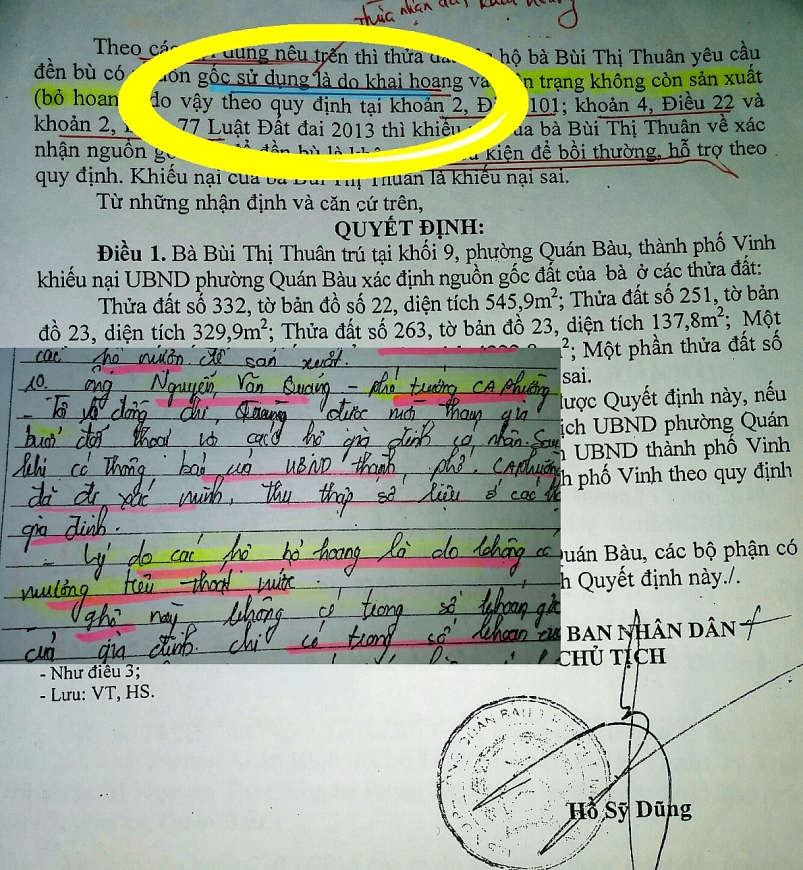 thừa nhận đất khai hoang
Theo các dung nêu trên thì thửa hộ bà Bùi Thị Thuân yêu cầu
đền bù có gốc sử dụng là do khai hoang và trạng không còn sản xuất
(bỏ hoan do vậy theo quy định tại khoản 2, 101; khoản 4, Điều 22 và
khoản 2, 77 Luật Đất đai 2013 thì khiếu của bà Bùi Thị Thuân về xác
nhận nguồn kiện để bồi thường, hỗ trợ theo
quy định. Khiếu nại của bà Bùi Thị Thuân là khiếu nại sai.
Từ những nhận định và căn cứ trên,
QUYẾT ĐỊNH:
Điều 1. Bà Bùi Thị Thuân trú tại khối 9, phường Quán Bàu, thành phố Vinh
khiếu nại UBND phường Quán Bàu xác định nguồn gốc đất của bà ở các thửa đất:
Thửa đất số 332, tờ bản đồ số 22, diện tích 545,9m²; Thửa đất số 251, tờ bản
đồ 23, diện tích 329,9m²; Thửa đất số 263, tờ bản đồ 23, diện tích 137,8m²; Một
²; Một phần thửa đất số
sai.
được Quyết định này, nếu
tịch UBND phường Quán
UBND thành phố Vinh
h phố Vinh theo quy định
Quán Bàu, các bộ phận có
h Quyết định này./.
các hộ mượn để sản xuất.
10. ông Nguyễn Văn Quang - phó trưởng CA phường
- đồng chí Quang được mời tham gia
buổi đối thoại với các hộ gia đình cá nhân. Sau
khi có thông báo của UBND thành phố. CA phường
đã đi xác minh, thu thập số liệu ở các hộ
gia đình.
- Lý do các hộ bỏ hoang là do không có
mương tiêu thoát nước.
này không có trong sổ khoán
của gia đình. chỉ có trong sổ khoán
BAN NHÂN DÂN
CHỦ TỊCH
- Như điều 3;
- Lưu: VT, HS.
Hồ Sỹ Dũng